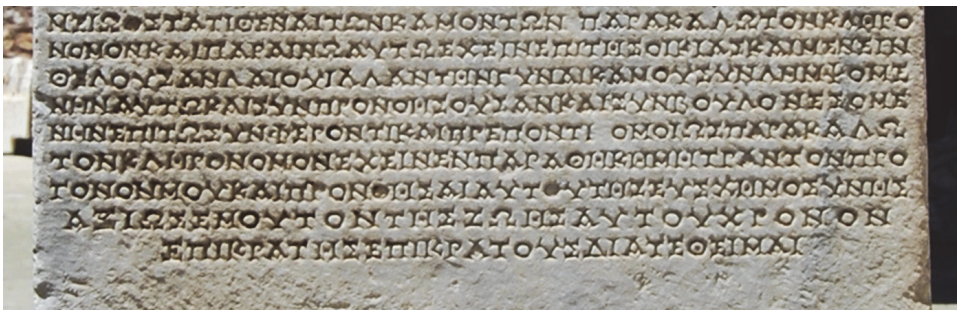 ΣΤΑΤΙΘΕΝΑΙΤΩΝΚΑΜΟΝΤΩΝ ΠΑΡΑΚΑΛΩΤΟΝΚΛΗΡΟ
ΝΟΜΟΝΚΑΙΠΑΡΑΙΝΩΑΥΤΩΕΧΕΙΝΕΠΙΤΗΣΟΙΚΙΑΣΚΑΙΜΕΝΕΙΝ
ΘΕΛΟΥΣΑΝΛΑΙΟΥΙΑΛΑΝΤΗΝΓΥΝΑΙΚΑΜΟΥΣΥΝΛΗΝΨΟΜΕ
ΝΗΝΑΥΤΩΚΑΙΣΥΝΠΡΟΝΟΗΣΟΥΣΑΝΚΑΙΣΥΝΒΟΥΛΟΝΕΣΟΜΕ
ΝΗΝΕΠΙΤΩΣΥΝΦΕΡΟΝΤΙΚΑΙΠΡΕΠΟΝΤΙ ΟΜΟΙΩΣΠΑΡΑΚΑΛΩ
ΤΟΝΚΛΗΡΟΝΟΜΟΝΕΧΕΙΝΕΝΠΑΡΑΘΗΚΗΜΗΤΡΑΝΤΟΝΠΡΟ
ΤΟΝΟΝΜΟΥΚΑΙΠΡΟΝΟΗΣΑΙΑΥΤΟΥΤΗΣΕΥΣΧΗΜΟΣΥΝΗΣ
ΑΞΙΩΣΕΜΟΥΤΟΝΤΗΣΖΩΗΣΑΥΤΟΥΧΡΟΝΟΝ
ΕΠΙΚΡΑΤΗΣΕΠΙΚΡΑΤΟΥΣΔΙΑΤΕΘΕΙΜΑΙ